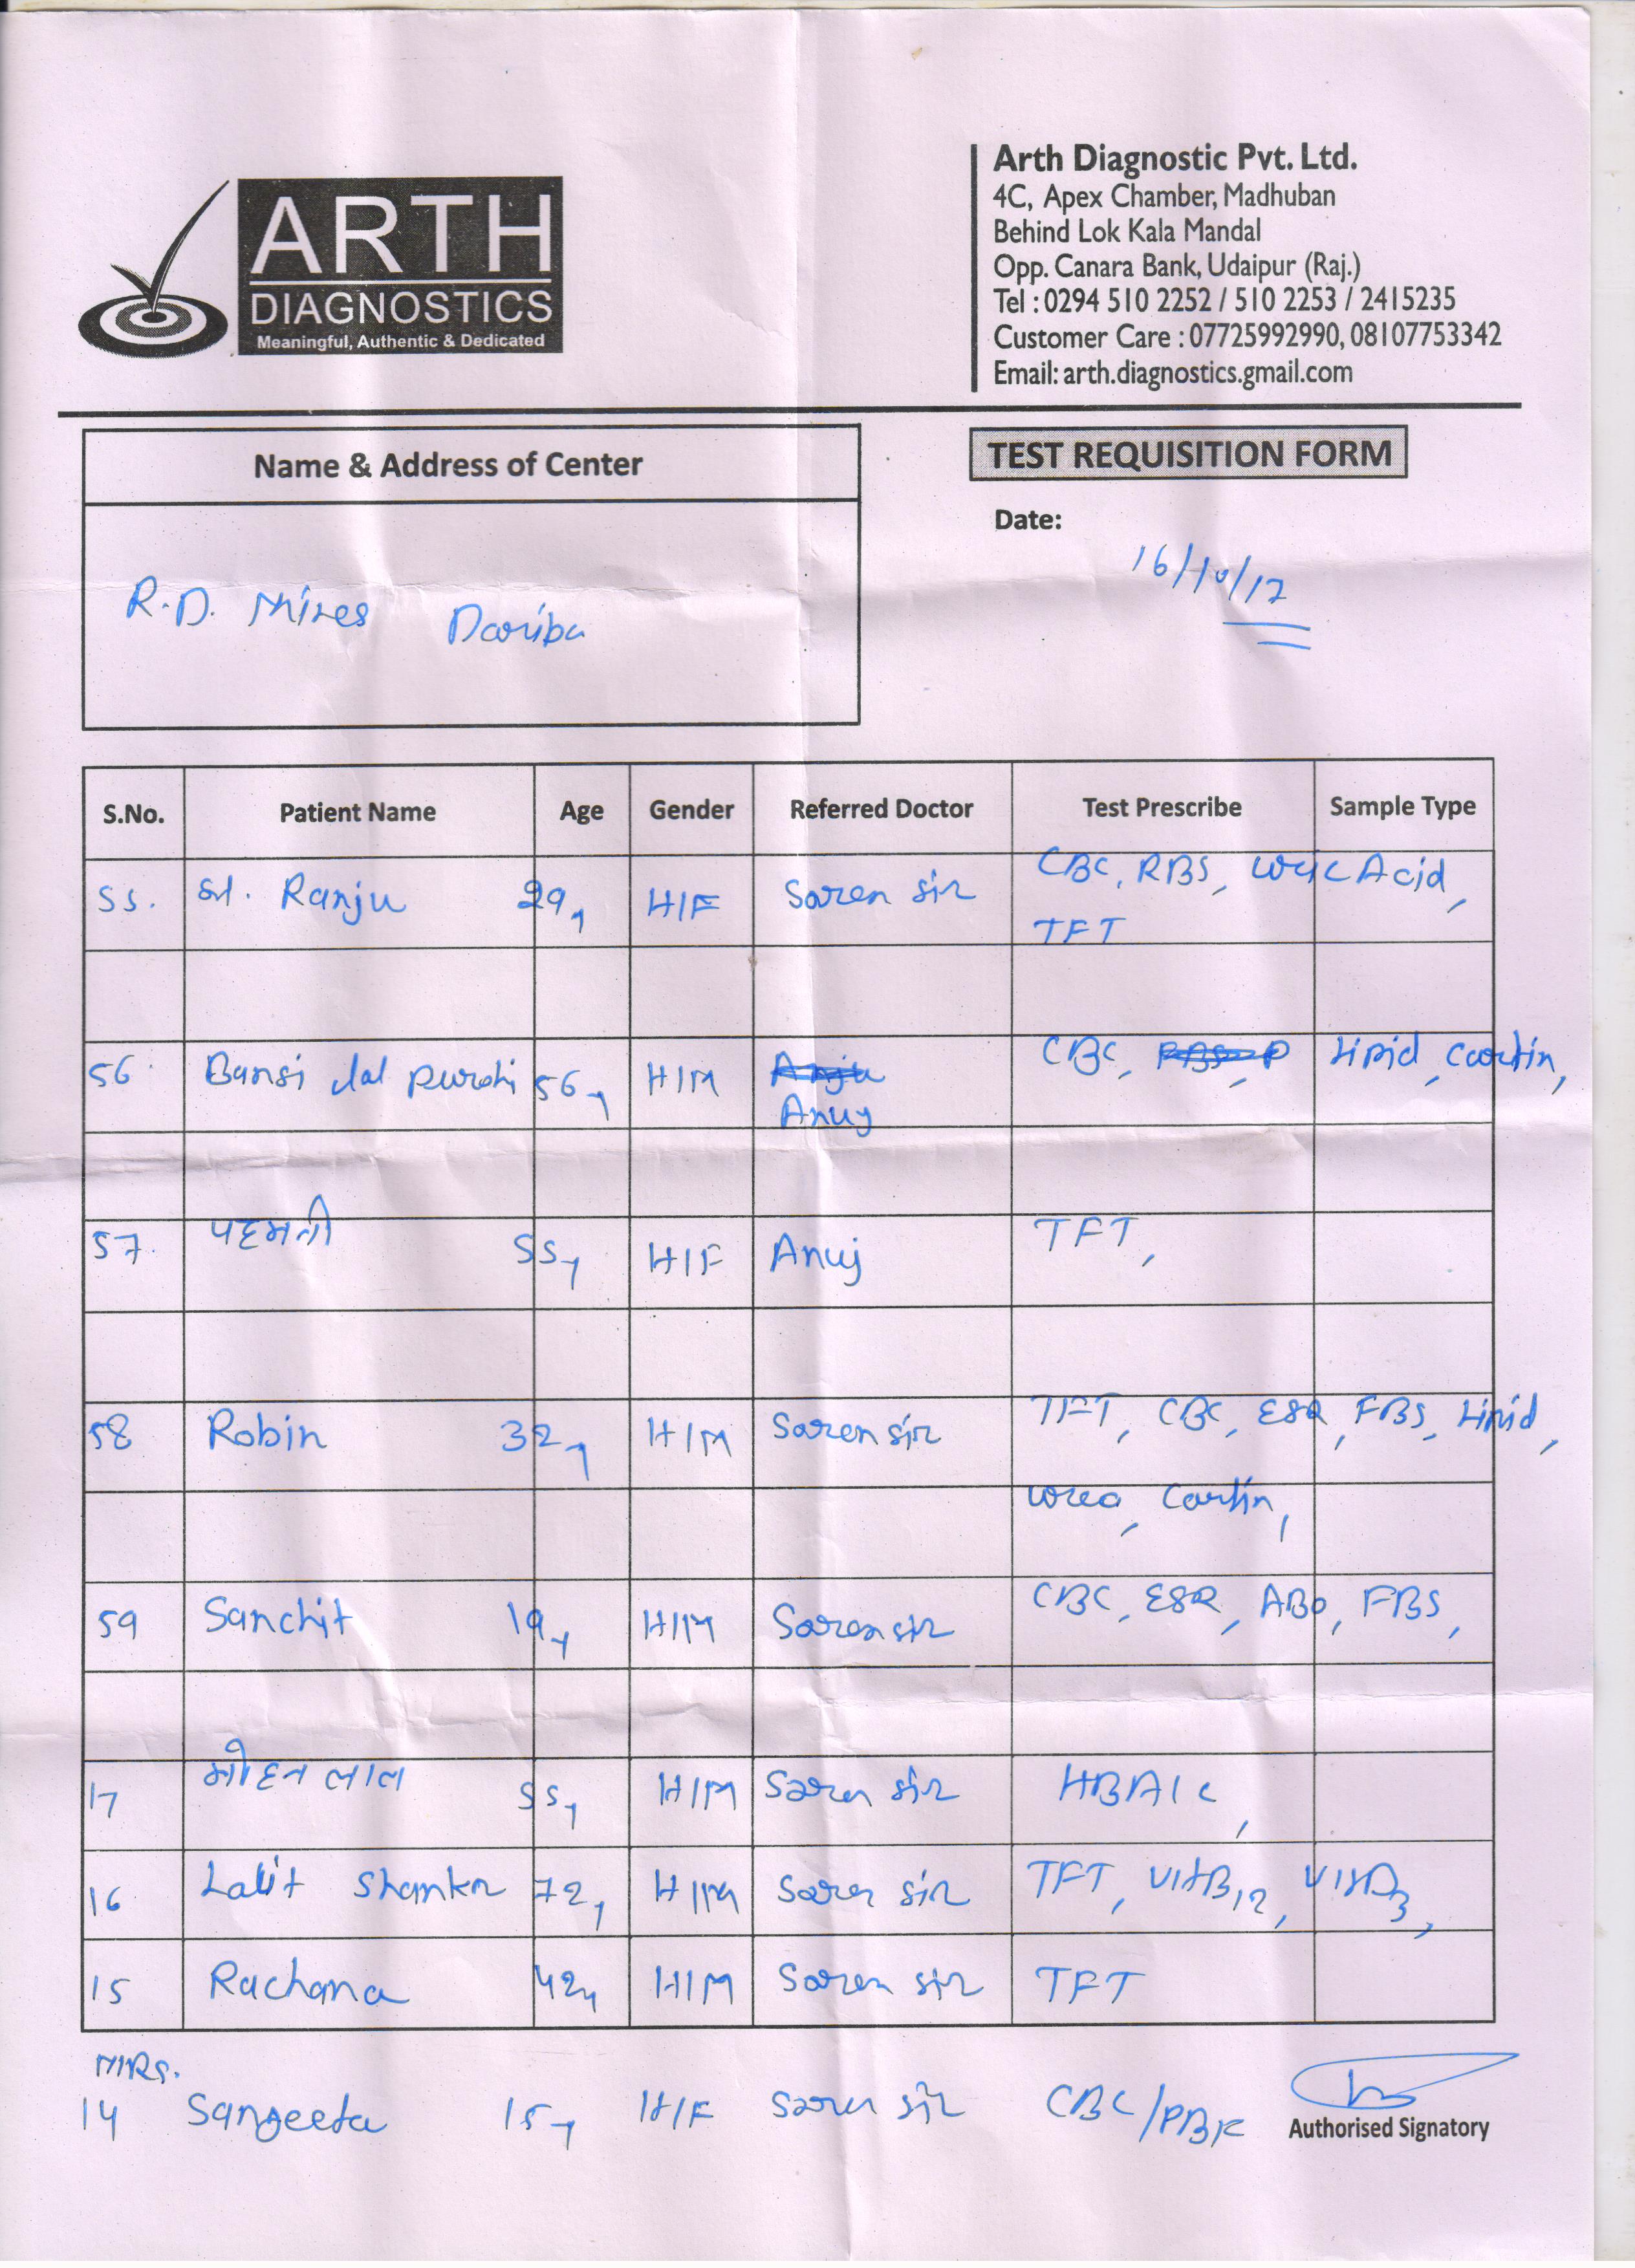 ARTH
DIAGNOSTICS
Meaningful, Authentic & Dedicated
Arth Diagnostic Pvt. Ltd.
4C, Apex Chamber, Madhuban
Behind Lok Kala Mandal
Opp. Canara Bank, Udaipur (Raj.)
Tel : 0294 510 2252 / 510 2253 / 2415235
Customer Care : 07725992990, 08107753342
Email: arth.diagnostics.gmail.com
Name & Address of Center
TEST REQUISITION FORM
Date:
16/10/17
R.D. Mines Dariba
S.No. Patient Name Age Gender Referred Doctor Test Prescribe Sample Type
55. Ranju 29y H/F Soren sir CBC, RBS, Uric Acid,
TFT
56. Bansi lal purohi 56y H/M Anuj CBC, Lipid,
57. पदमनी 55y H/F Anuj TFT,
58 Robin 32y H/M Soren sir TFT, CBC, ESR, FBS, Lipid,
urea,
59 Sanchit 19y H/M Soren sir CBC, ESR, ABO, FBS,
17 मोहन लाल 55y H/M Soren sir HBA1C,
16 Lalit Shanker 72y H/M Soren sir TFT, VitB12, VitD3,
15 Rachana 42y H/M Soren sir TFT
MRS.
14 Sangeeta 15y H/F Soren sir CBC/PBF
Authorised Signatory